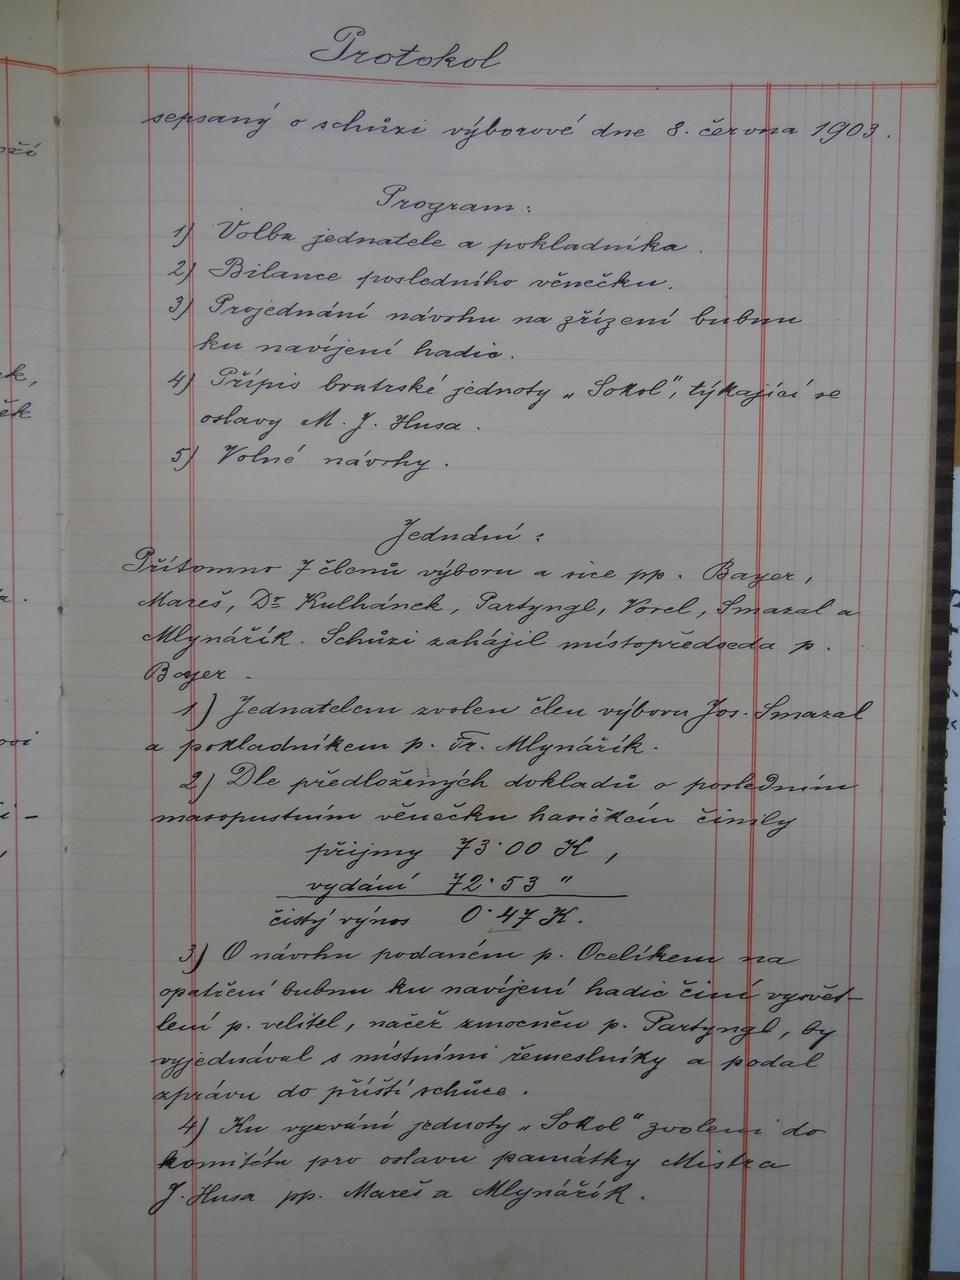 Protokol
sepsaný o schůzi výborové dne 8. června 1903.
Program:
1) Volba jednatele a pokladníka.
2) Bilance posledního věnečku.
3) Projednání návrhu na zřízení bubnu
ku navíjení hadic.
4) Přípis bratrské jednoty „Sokol", týkající se
oslavy M. J. Husa.
5) Volné návrhy.
Jednání:
Přítomno 7 členů výboru a sice pp. Bayer,
Mareš, Dr. Kulhánek, Partyngl, Vorel, Smazal a
Mlynářík. Schůzi zahájil místopředseda p.
Bayer.
1) Jednatelem zvolen člen výboru Jos. Smazal
a pokladníkem p. Fr. Mlynářík.
2) Dle předložených dokladů o posledním
masopustním věnečku hasičkém činily
přijmy 73·00 K,
vydání 72·53 "
čistý výnos 0·47 K.
3) O návrhu podaném p. Ocelíkem na
opatření bubnu ku navíjení hadic činí vysvět-
lení p. velitel, načež zmocněn p. Partyngl, by
vyjednával s místními řemeslníky a podal
zprávu do příští schůze.
4) Ku vyzvání jednoty „Sokol" zvoleni do
komitétu pro oslavu památky Mistra
J. Husa pp. Mareš a Mlynářík.
ěk,
ěk